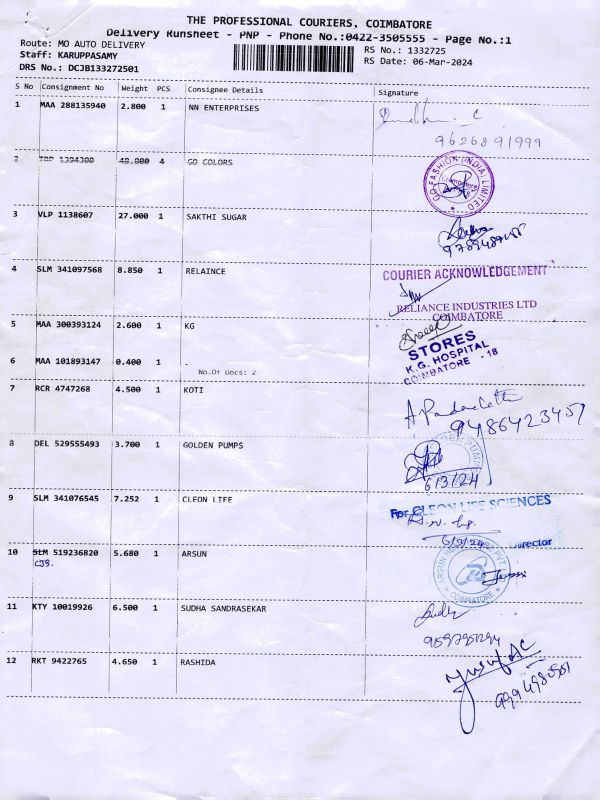 THE PROFESSIONAL COURIERS, COIMBATORE
Delivery Runsheet - PNP - Phone No.:0422-3505555 - Page No.:1
Route: MO AUTO DELIVERY
RS No.: 1332725
Staff: KARUPPASAMY
RS Date: 06-Mar-2024
DRS No.: DCJB133272501
S No Consignment No Weight PCS Consignee Details Signature
1 MAA 288135940 2.800 1 NN ENTERPRISES
9626891999
2 TRP 1394300 48.000 4 GD COLORS
FASHION (INDIA) LIMITED
3 VLP 1138607 27.000 1 SAKTHI SUGAR
4 SLM 341097568 8.850 1 RELAINCE
COURIER ACKNOWLEDGEMENT
RELIANCE INDUSTRIES LTD
COIMBATORE
5 MAA 300393124 2.600 1 KG
STORES
K.G. HOSPITAL
COIMBATORE - 18
6 MAA 101893147 0.400 1 .
No.Of Docs: 2
7 RCR 4747268 4.500 1 KOTI
9486423457
8 DEL 529555493 3.700 1 GOLDEN PUMPS
6/3/24
9 SLM 341076545 7.252 1 CLEON LIFE
For CLEON LIFE SCIENCES
Director
10 SLM 519236820 5.680 1 ARSUN
CJB.
ARSUN
COIMBATORE
11 KTY 10019926 6.500 1 SUDHA SANDRASEKAR
Sudha
12 RKT 9422765 4.650 1 RASHIDA
Yusuf AC